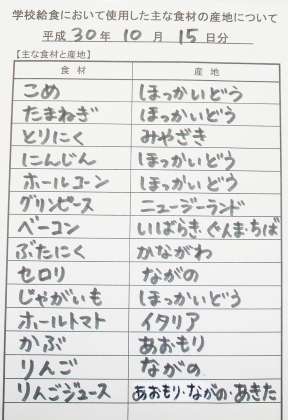 学校給食において使用した主な食材の産地について
平成 30年 10月 15日分
【主な食材と産地】
食材 産地
こめ ほっかいどう
たまねぎ ほっかいどう
とりにく みやざき
にんじん ほっかいどう
ホールコーン ほっかいどう
グリンピース ニュージーランド
ベーコン いばらき・ぐんま・ちば
ぶたにく かながわ
セロリ ながの
じゃがいも ほっかいどう
ホールトマト イタリア
かぶ あおもり
りんご ながの
りんごジュース あおもり・ながの・あきた